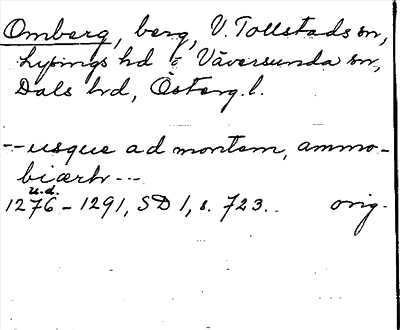 Omberg, berg, V. Tollstads sn,
Lysings hd & Väversunda sn,
Dals hd, Österg. l.
-- usque ad montem, ammo-
biærh ---
u.d.
1276 - 1291, SD 1, s. 723. orig.